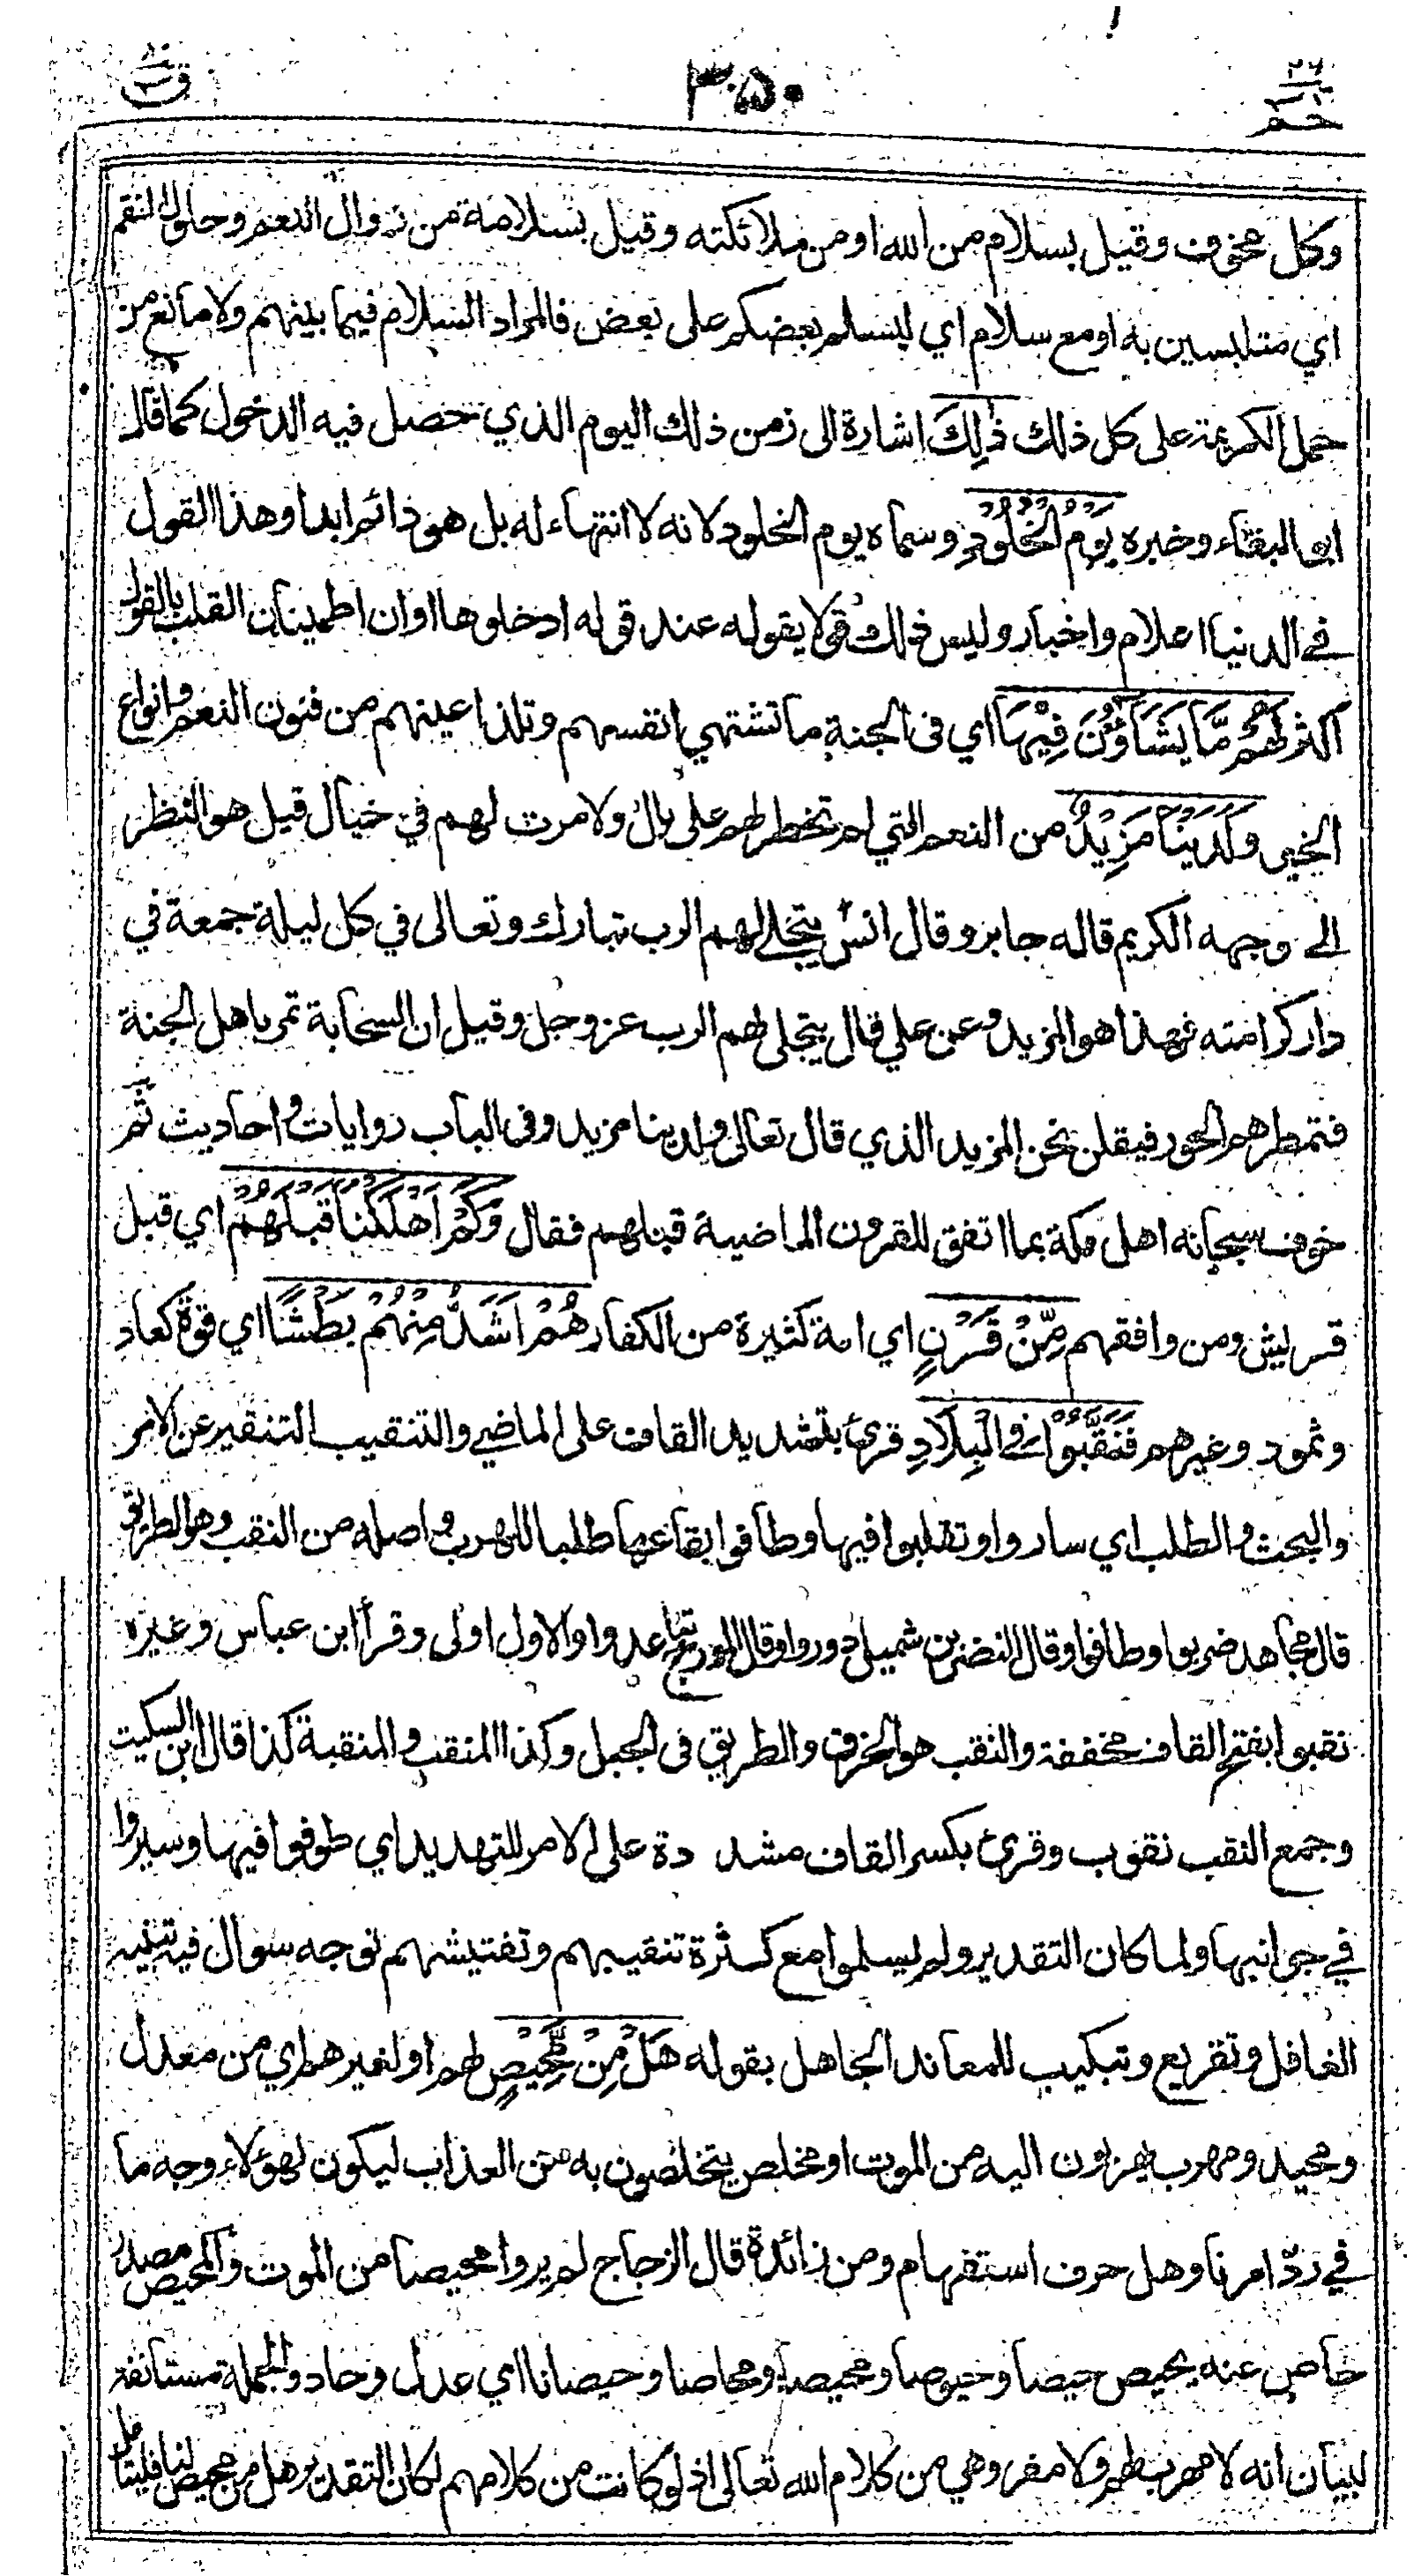 ٢٦
حم
٣٥٠
ق
وكل مخوف وقيل بسلام من الله او من ملائكته وقيل بسلامة من زوال النعم وحلول النقم
اي متلبسين به او مع سلام اي ليسلم بعضكم على بعض فالمراد السلام فيما بينهم ولا مانع من
حمل الكريمة على كل ذلك ذٰلِكَ اشارة الى زمن ذلك اليوم الذي حصل فيه الدخول كما قال
ابو البقاء وخبره يَوْمُ الْخُلُوْدِ وسماه يوم الخلود لانه لا انتهاء له بل هو دائم ابدا وهذا القول
في الدنيا اعلام واخبار وليس ذلك قولا يقوله عند قوله ادخلوها اوان اطمينان القلب بالقول
اكثر لَهُمْ مَّا يَشَآؤُنَ فِيْهَا اي فى الجنة ما تشتهي انفسهم وتلذ اعينهم من فنون النعم وانواع
الخير وَلَدَيْنَا مَزِيْدٌ من النعم التي لم تخطر لهم على بال ولا مرت لهم في خيال قيل هو النظر
الى وجهه الكريم قاله جابر وقال انس يتجلى لهم الرب تبارك وتعالى في كل ليلة جمعة في
دار كرامته فهذا هو المزيد وعن علي قال يتجلى لهم الرب عز وجل وقيل ان السحابة تمر باهل الجنة
فتمطرهم الحور فيقلن نحن المزيد الذي قال تعالى ولدينا مزيد وفى الباب روايات واحاديث ثم
خوف سبحانه اهل مكة بما اتفق للقرون الماضية قبلهم فقال وَكَمْ اَهْلَكْنَا قَبْلَهُمْ اي قبل
قريش ومن وافقهم مِّنْ قَرْنٍ اي امة كثيرة من الكفار هُمْ اَشَدُّ مِنْهُمْ بَطْشًا اي قوة كعاد
وثمود وغيرهم فَنَقَّبُوْا فِي الْبِلَادِ قرئ بتشديد القاف على الماضي والتنقيب التنقير عن الامر
والبحث والطلب اي ساروا وتقلبوا فيها وطافوا بقاعها طلبا للهرب واصله من النقب وهو الطريق
قال مجاهد ضربوا وطافوا وقال النضر بن شميل دوروا وقال المورج تباعدوا والاول اولى وقرأ ابن عباس وغيره
نقبوا بفتح القاف مخففة والنقب هو الخرق والطريق فى الجبل وكذا المنقب والمنقبة كذا قال ابن السكيت
وجمع النقب نقوب وقرئ بكسر القاف مشددة على الامر للتهديد اي طوفوا فيها وسيروا
في جوانبها ولما كان التقدير ولم يسلموا مع كثرة تنقيبهم وتفتيشهم توجه سوال فيه تنبيه
الغافل وتقريع وتبكيت للمعاند الجاهل بقوله هَلْ مِنْ مَّحِيْصٍ لهم او لغيرهم اي من معدل
ومحيد ومهرب يهربون اليه من الموت او مخلص يتخلصون به من العذاب ليكون لهؤلاء وجه ما
في ردّ امرنا وهل حرف استفهام ومن زائدة قال الزجاج لم يروا محيصا من الموت والمحيص مصدر
حاص عنه يحيص حيصا وحيوصا ومحيصا ومحاصا وحيصانا اي عدل وحاد والجملة مستانفة
لبيان انه لا مهرب لهم ولا مفر وهي من كلام الله تعالى اذ لو كانت من كلامهم لكان التقدير هل من محيص لنا فليتامل